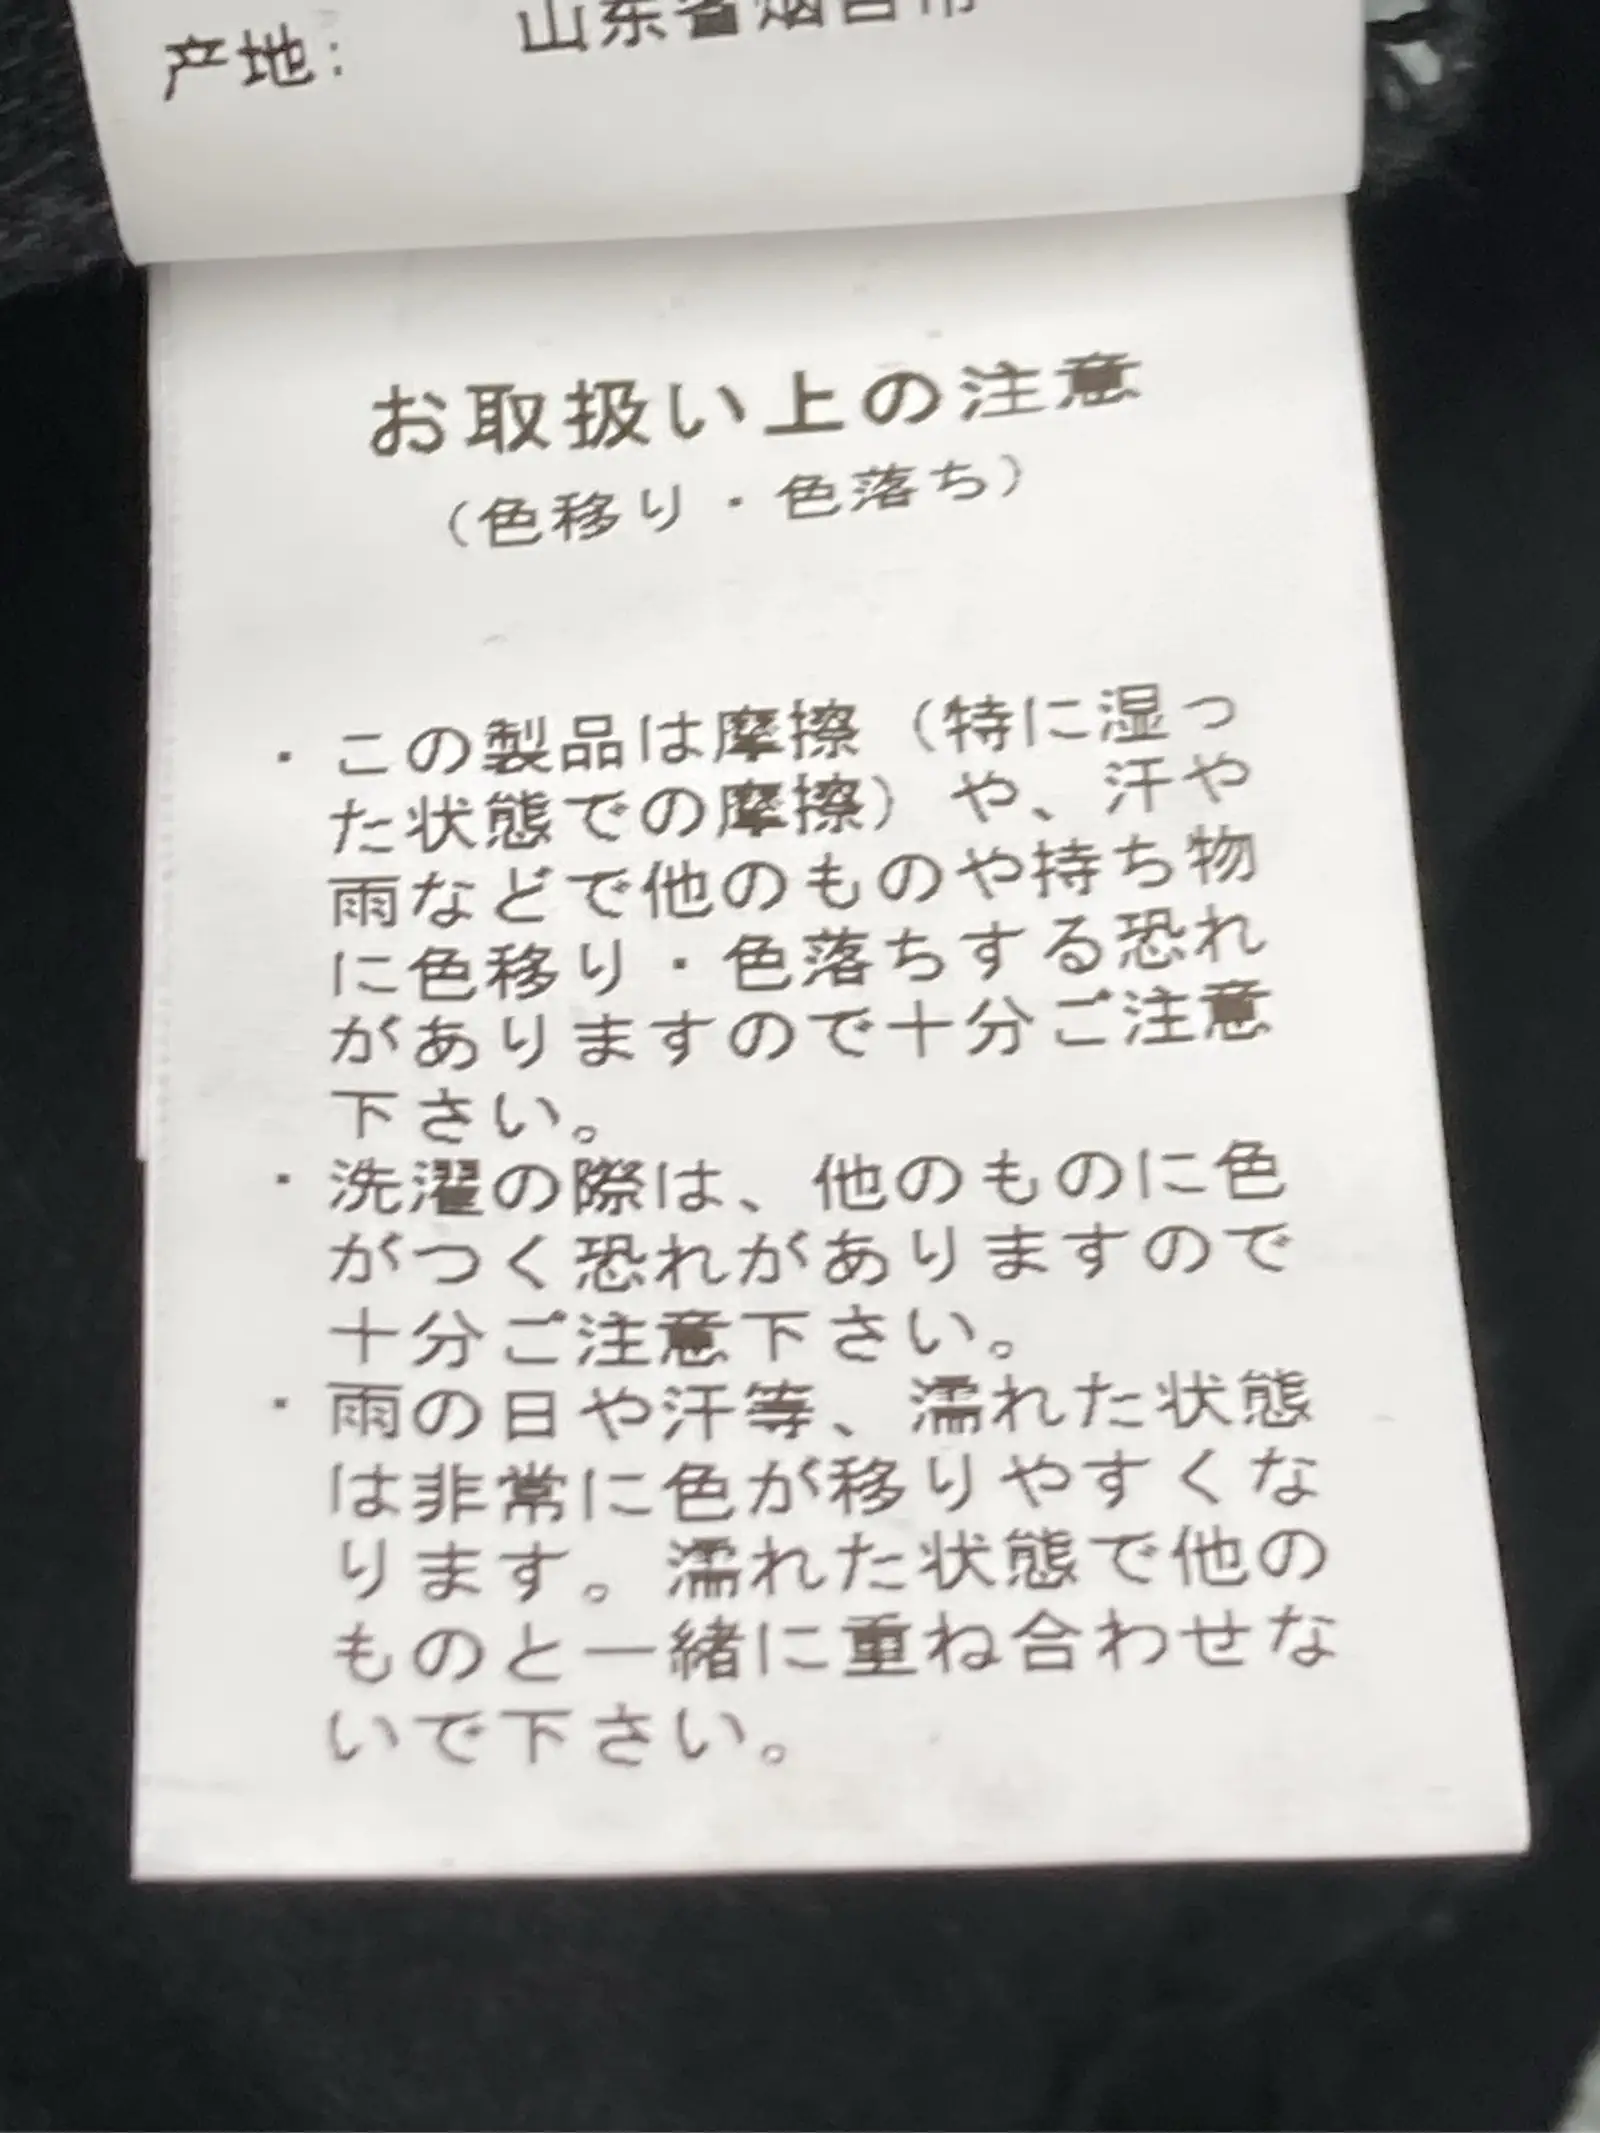 产地: 山东省烟台市
お取扱い上の注意
（色移り・色落ち）
・この製品は摩擦（特に湿っ
た状態での摩擦）や、汗や
雨などで他のものや持ち物
に色移り・色落ちする恐れ
がありますので十分ご注意
下さい。
・洗濯の際は、他のものに色
がつく恐れがありますので
十分ご注意下さい。
・雨の日や汗等、濡れた状態
は非常に色が移りやすくな
ります。濡れた状態で他の
ものと一緒に重ね合わせな
いで下さい。